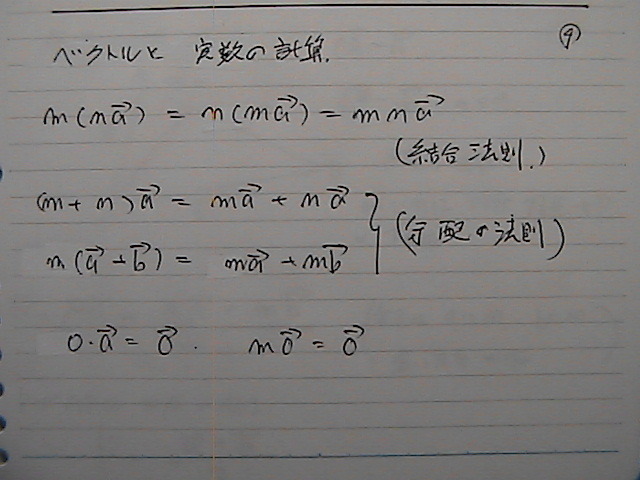 ベクトルと 実数の計算. ④
m(n\vec{a}) = n(m\vec{a}) = mn\vec{a}
(結合法則.)
(m+n)\vec{a} = m\vec{a} + n\vec{a}
m(\vec{a}+\vec{b}) = m\vec{a} + m\vec{b}
(分配の法則)
0·\vec{a} = \vec{0}. m\vec{0} = \vec{0}